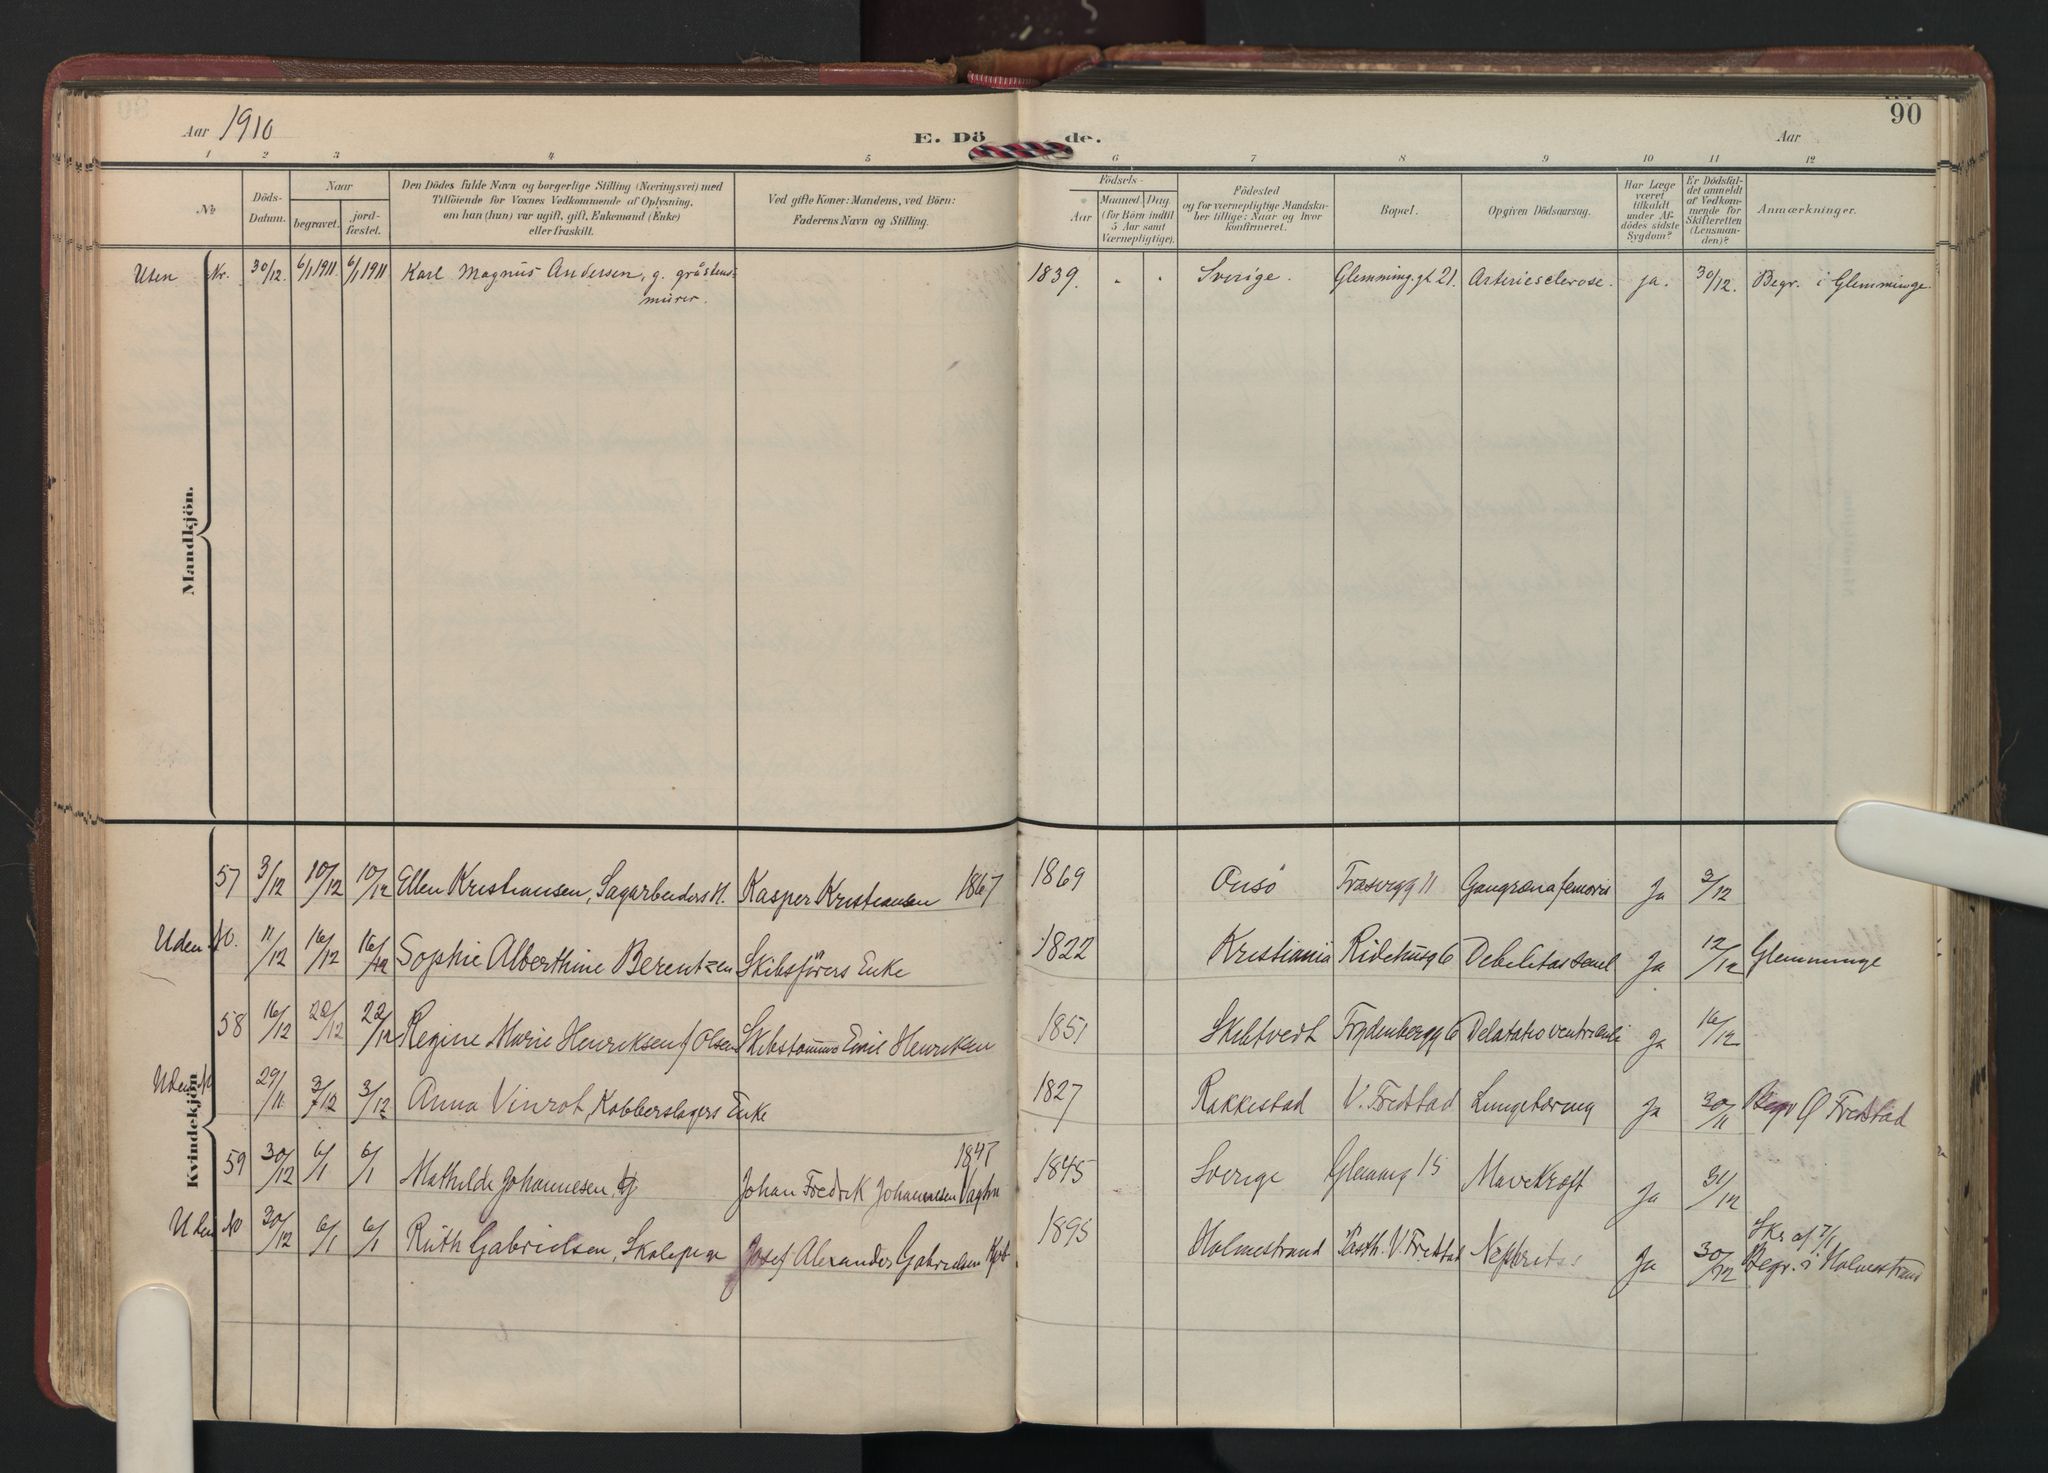 90
Aar 1910
E. Dö de.
Aar
1 2 3 4 5 6 7 8 9 10 11 12
No
Döds-
Datum.
Naar
begravet.
jord-
fæstet.
Den Dödes fulde Navn og borgerlige Stilling (Næringsvei) med
Tilföiende for Voxnes Vedkommende af Oplysning,
om han (hun) var ugift, gift, Enkemand (Enke)
eller fraskilt.
Ved gifte Koner: Mandens, ved Börn:
Faderens Navn og Stilling.
Födsels-
Aar
Maaned Dag
(for Börn indtil
5 Aar samt
Værnepligtige).
Födested
og for værnepligtige Mandska-
ber tillige: Naar og hvor
konfirmeret.
Bopæl.
Opgiven Dödsaarsag.
Har Læge
været
tilkaldt
under Af-
dödes sidste
Sygdom?
Er Dödsfal-
det anmeldt
af Vedkom-
mende for
Skifteretten
(Lensman-
den)?
Anmærkninger.
Uten Nr. 30/12. 6/1 1911 6/1 1911 Karl Magnus Andersen, g. gråstens- 1839. Sverige. Glemming.gt 21. Arteriesclerose. ja. 30/12. Begr. i Glemminge.
mürer.
Mandkjön.
57 3/12 10/12 10/12 Ellen Kristiansen, Sagarbeiders H. Kasper Kristiansen 1867 1869 Onsö 11 Gangræna femoris Ja 3/12
Uden No. 11/12 16/12 16/12 Sophie Alberthine Berentzen Skibsförers Enke 1822 Kristiania Ridehusg 6 Debelitas senel Ja 12/12 Glemminge
58 16/12 22/12 22/12 Regine Marie Henriksen f Olsen Emil Henriksen 1851 Skibtvedt Frydenbergg 6 Delatatio ventriculi Ja 16/12
Uden No 29/11 3/12 3/12 Anna Vinrot, Kobberslagers Enke 1827 Rakkestad V. Fredstad Lungetæring Ja 30/11 Begr Ø Fredstad
Kvindekjön
59 30/12 6/1 6/1 Mathilde Johannesen, Johan Fredrik Johannesen 1847 1845 Sverige Glemmg 15 Mavekræft Ja 31/12
Uden No 30/12 6/1 6/1 Ruth Gabrielsen, Skolepige Josef Alexander Gabrielsen 1895 Holmestrand V. Fredstad Nephritis Ja 30/12 Skr af 7/1
Begr. i Holmestrand